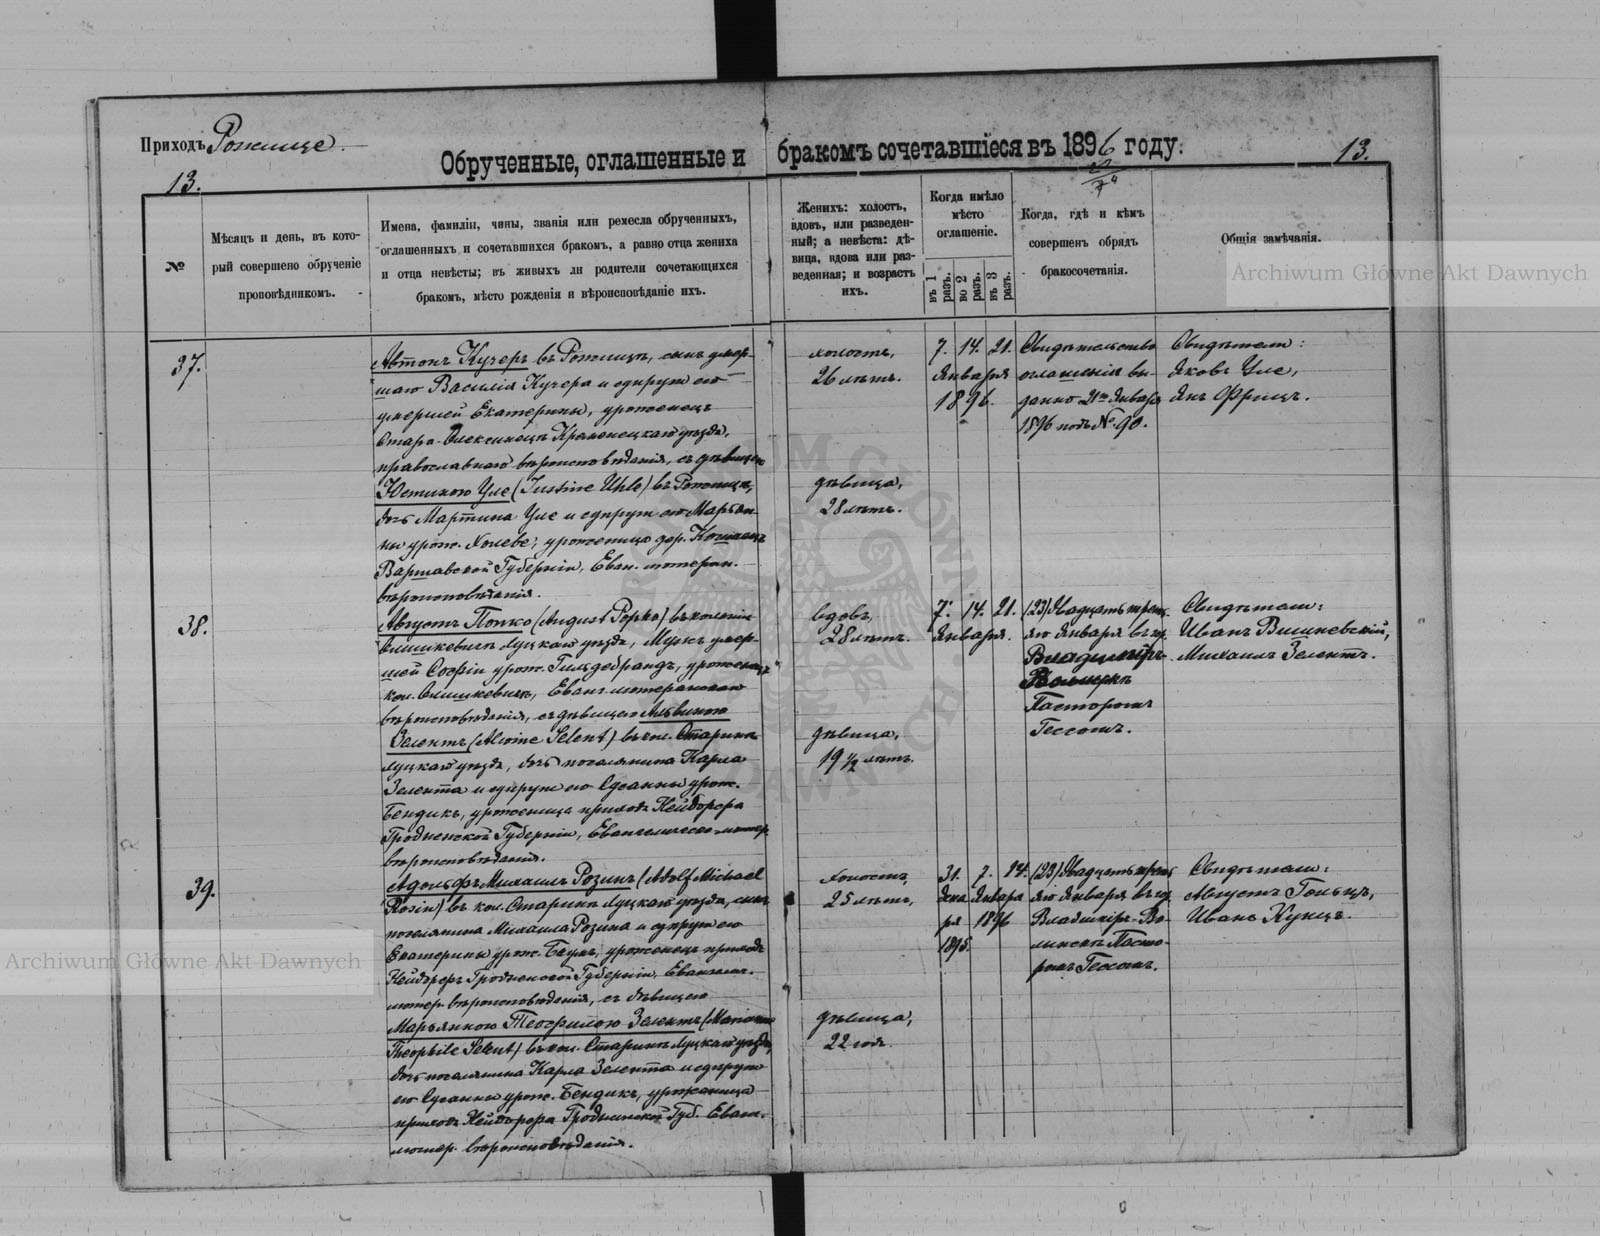 Приходъ Рожище.
Обрученные, оглашенные и бракомъ сочетавшіеся въ 1896 году.
13.
13.
№
Мѣсяцъ и день, въ кото-
рый совершено обрученіе
проповѣдникомъ.
Имена, фамиліи, чины, званія или ремесла обрученныхъ,
оглашенныхъ и сочетавшихся бракомъ, а равно отца жениха
и отца невѣсты; въ живыхъ ли родители сочетающихся
бракомъ, мѣсто рожденія и вѣроисповѣданіе ихъ.
Женихъ: холостъ,
вдовъ, или разведен-
ный; а невѣста: дѣ-
вица, вдова или раз-
веденная; и возрастъ
ихъ.
Когда имѣло
мѣсто
оглашеніе.
въ 1 разъ.
во 2 разъ.
въ 3 разъ.
Когда, гдѣ и кѣмъ
совершенъ обрядъ
бракосочетанія.
Общія замѣчанія.
Archiwum Główne Akt Dawnych
37.
Антонъ Кучеръ въ Рожищѣ, сынъ умер-
шаго Василія Кучера и супруги его
умершей Екатерины, уроженецъ
Старо-Олексинецъ Кременецкаго уѣзда,
православнаго вѣроисповѣданія, съ дѣвицею
Юстиною Уле (Justine Uhle) въ Рожищѣ,
дочь Мартина Уле и супруги его Марьян-
ны урож. Холеве, уроженица дер.
Варшавской Губерніи, Еван. лютеран.
вѣроисповѣданія.
холостъ,
26 лѣтъ.
дѣвица,
28 лѣтъ.
7. 14. 21.
Января
1896.
Свидѣтельство
оглашенія вы-
дано 21го Января
1896 подъ № 90.
Свидѣтели:
Яковъ Уле,
Янъ Фрицъ.
38.
Августъ Попко (August Popko) въ колоніи
Олишкевичъ Луцкаго уѣзда, Мужъ умер-
шей Софіи урож. Гильдебрандъ, уроженецъ
кол. Олишкевичъ, Еванг. лютеранскаго
вѣроисповѣданія, съ дѣвицею Альвиною
Зелентъ (Alwine Selent) въ кол. Старики
Луцкаго уѣзда, дочь поселянина Карла
Зелента и супруги его Сусанны урож.
Бендикъ, уроженица прихода Нейдорфа
Гродненской Губерніи, Евангелическо-лютер.
вѣроисповѣданія.
вдовъ,
28 лѣтъ.
дѣвица,
19 1/2 лѣтъ.
7. 14. 21.
Января.
(23) Двадцать треть-
яго Января въ гор.
Владиміръ-
Волынскъ
Пасторомъ
Гессомъ.
Свидѣтели:
Иванъ Вишневскій,
Михаилъ Зелентъ.
39.
Адольфъ Михаилъ Розинъ (Adolf Michael
Rosin) въ кол. Старики Луцкаго уѣзда, сынъ
поселянина Михаила Розина и супруги его
Екатерины урож. Баумъ, уроженецъ прихода
Нейдорфъ Гродненской Губерніи, Евангел.
лютер. вѣроисповѣданія, съ дѣвицею
Марьянною Теофилою Зелентъ (Marianne
Theophile Selent) въ кол. Старики Луцкаго уѣзда,
дочь поселянина Карла Зелента и супруги
его Сусанны урож. Бендикъ, уроженица
прихода Нейдорфа Гродненской Губ. Еванг.
лютер. вѣроисповѣданія.
холостъ,
25 лѣтъ,
дѣвица,
22 годъ.
31. 7. 14.
Дека Января
ря 1896
1895.
(23) Двадцать треть-
яго Января въ гор.
Владиміръ-Во-
лынскъ Пасто-
ромъ Гессомъ.
Свидѣтели:
Августъ Гольцъ,
Иванъ Кунцъ.
Archiwum Główne Akt Dawnych